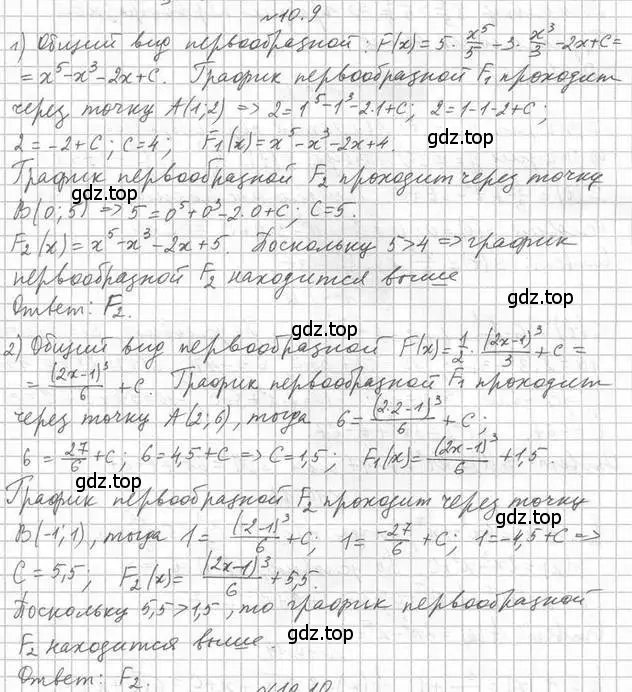 №10.9
1) Общий вид первообразной: F(x) = 5·x⁵/5 - 3·x³/3 - 2x+C =
= x⁵-x³-2x+C. График первообразной F₁ проходит
через точку A(1;2) => 2=1⁵-1³-2·1+C; 2=1-1-2+C;
2=-2+C; C=4; F₁(x)=x⁵-x³-2x+4.
gdz.top
График первообразной F₂ проходит через точку
gdz.top
gdz.top
B(0;5) => 5=0⁵+0³-2·0+C; C=5.
F₂(x)=x⁵-x³-2x+5. Поскольку 5>4 => график
gdz.top
первообразной F₂ находится выше
Ответ: F₂.
gdz.top
2) Общий вид первообразной F(x)=1/2·(2x-1)³/3+C=
= (2x-1)³/6 + C. График первообразной F₁ проходит
gdz.top
через точку A(2;6), тогда 6=(2·2-1)³/6+C;
gdz.top
6=27/6+C; 6=4,5+C => C=1,5; F₁(x)=(2x-1)³/6+1,5.
gdz.top
График первообразной F₂ проходит через точку
B(-1;1), тогда 1=(-2-1)³/6+C; 1=-27/6+C; 1=-4,5+C =>
gdz.top
C=5,5; F₂(x)=(2x-1)³/6+5,5.
gdz.top
Поскольку 5,5>1,5, то график первообразной
F₂ находится выше.
gdz.top
gdz.top
Ответ: F₂.
№10.10